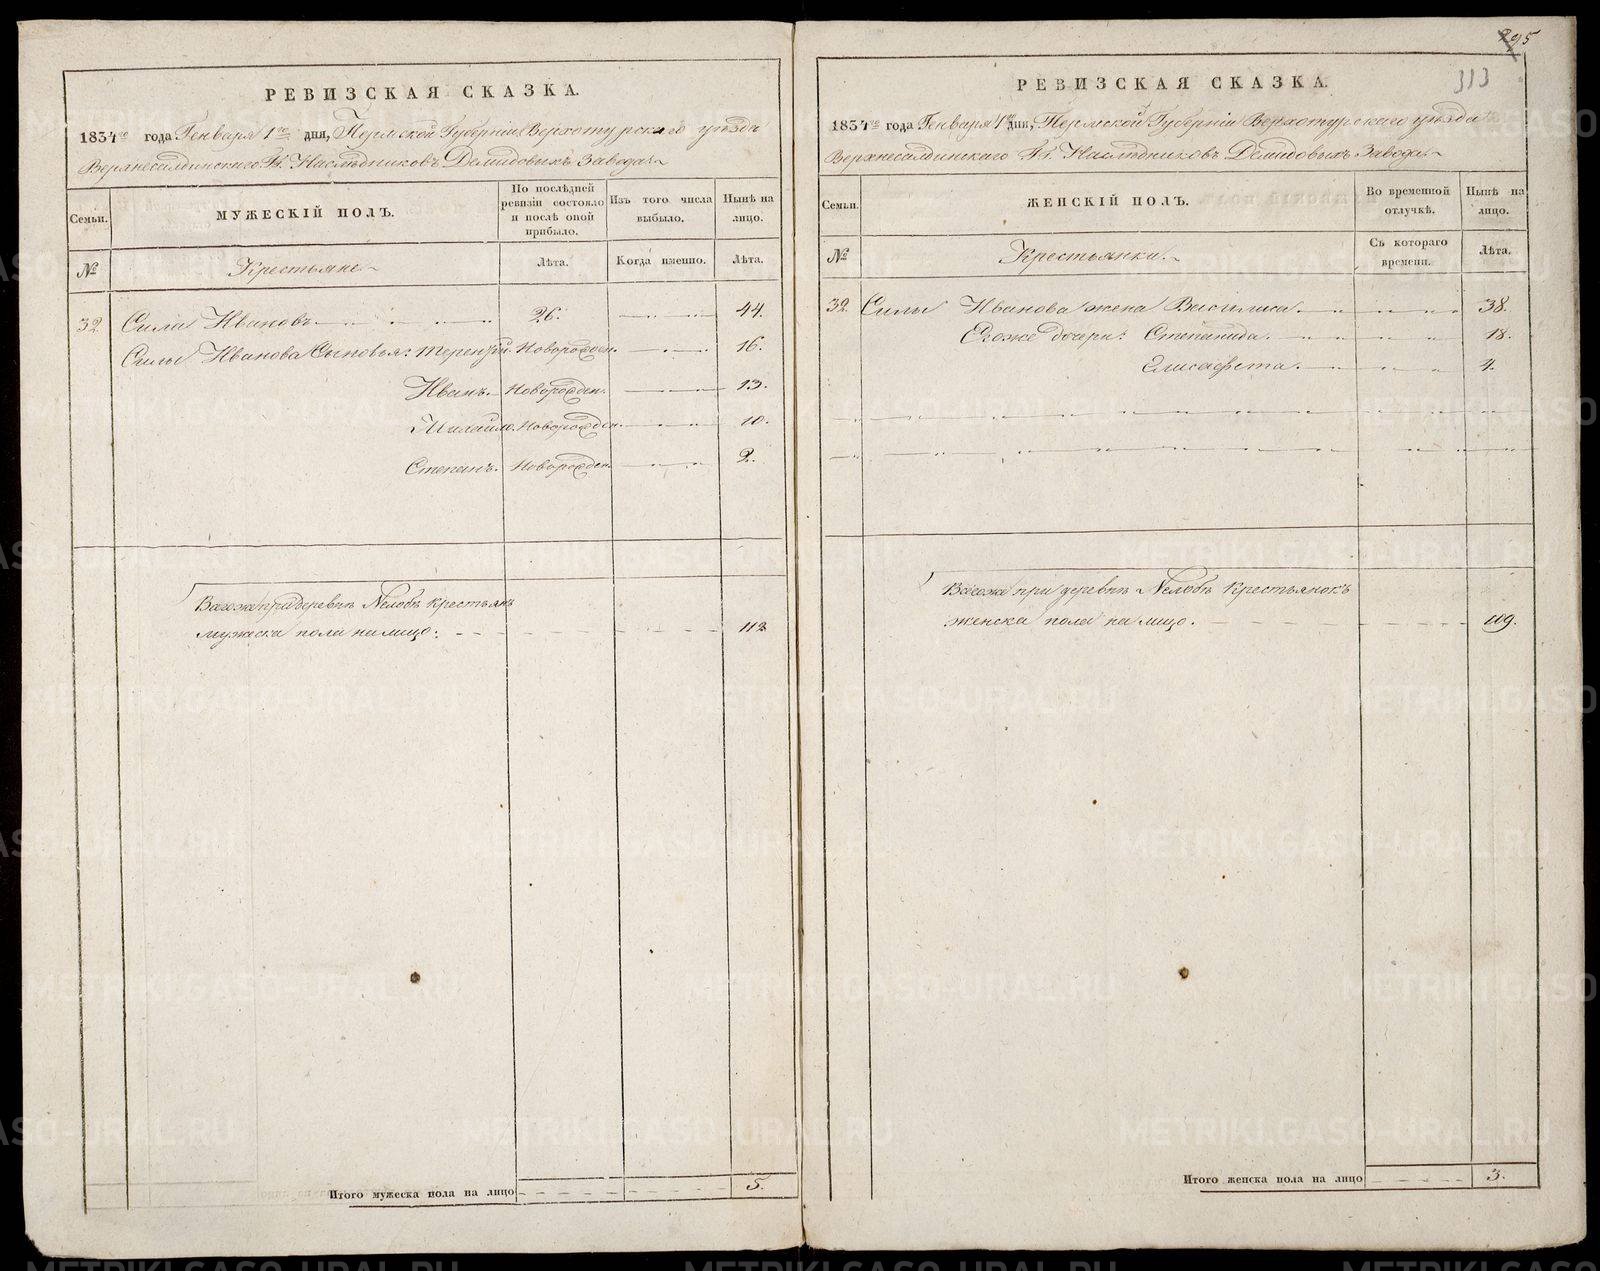 295
313
РЕВИЗСКАЯ СКАЗКА.
1834го года Генваря 1го дня, Пермской Губерніи Верхотурскаго уѣзда
Верхнесалдинскаго Гг. Наслѣдниковъ Демидовыхъ Завода
Семьи.
МУЖЕСКІЙ ПОЛЪ.
По послѣдней ревизіи состояло и послѣ оной прибыло.
Изъ того числа выбыло.
Нынѣ на лицо.
№
Крестьяне
Лѣта.
Когда именно.
Лѣта.
32 Сила Ивановъ 26. 44.
Силы Иванова Сыновья: Терентій Новорожден. 16.
Иванъ. Новорожден. 13.
Михайло. Новорожден. 10.
Степанъ. Новорожден. 2.
Всего же при деревнѣ Нелобѣ Крестьянъ
мужеска пола на лицо: 112
Итого мужеска пола на лицо 5.
РЕВИЗСКАЯ СКАЗКА.
1834го года Генваря 1го дня, Пермской Губерніи Верхотурскаго уѣзда
Верхнесалдинскаго Гг. Наслѣдниковъ Демидовыхъ Завода
Семьи.
ЖЕНСКІЙ ПОЛЪ.
Во временной отлучкѣ.
Нынѣ на лицо.
№
Крестьянки.
Съ котораго времени.
Лѣта.
32. Силы Иванова жена Василиса. 38.
Его же дочери: Степанида. 18.
Елисафета. 4.
Всего же при деревнѣ Нелобѣ Крестьянокъ
женска пола на лицо. 109.
Итого женска пола на лицо 3.
METRIKI.GASO-URAL.RU